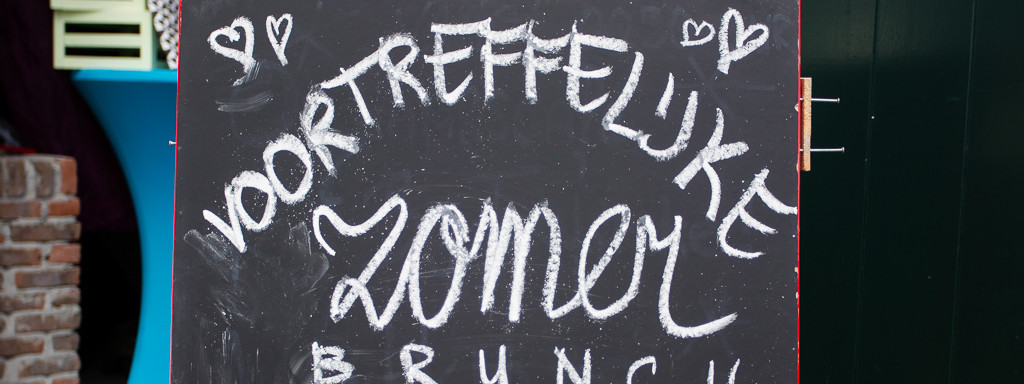 VOORTREFFELIJKE
zomer
BRUNCH